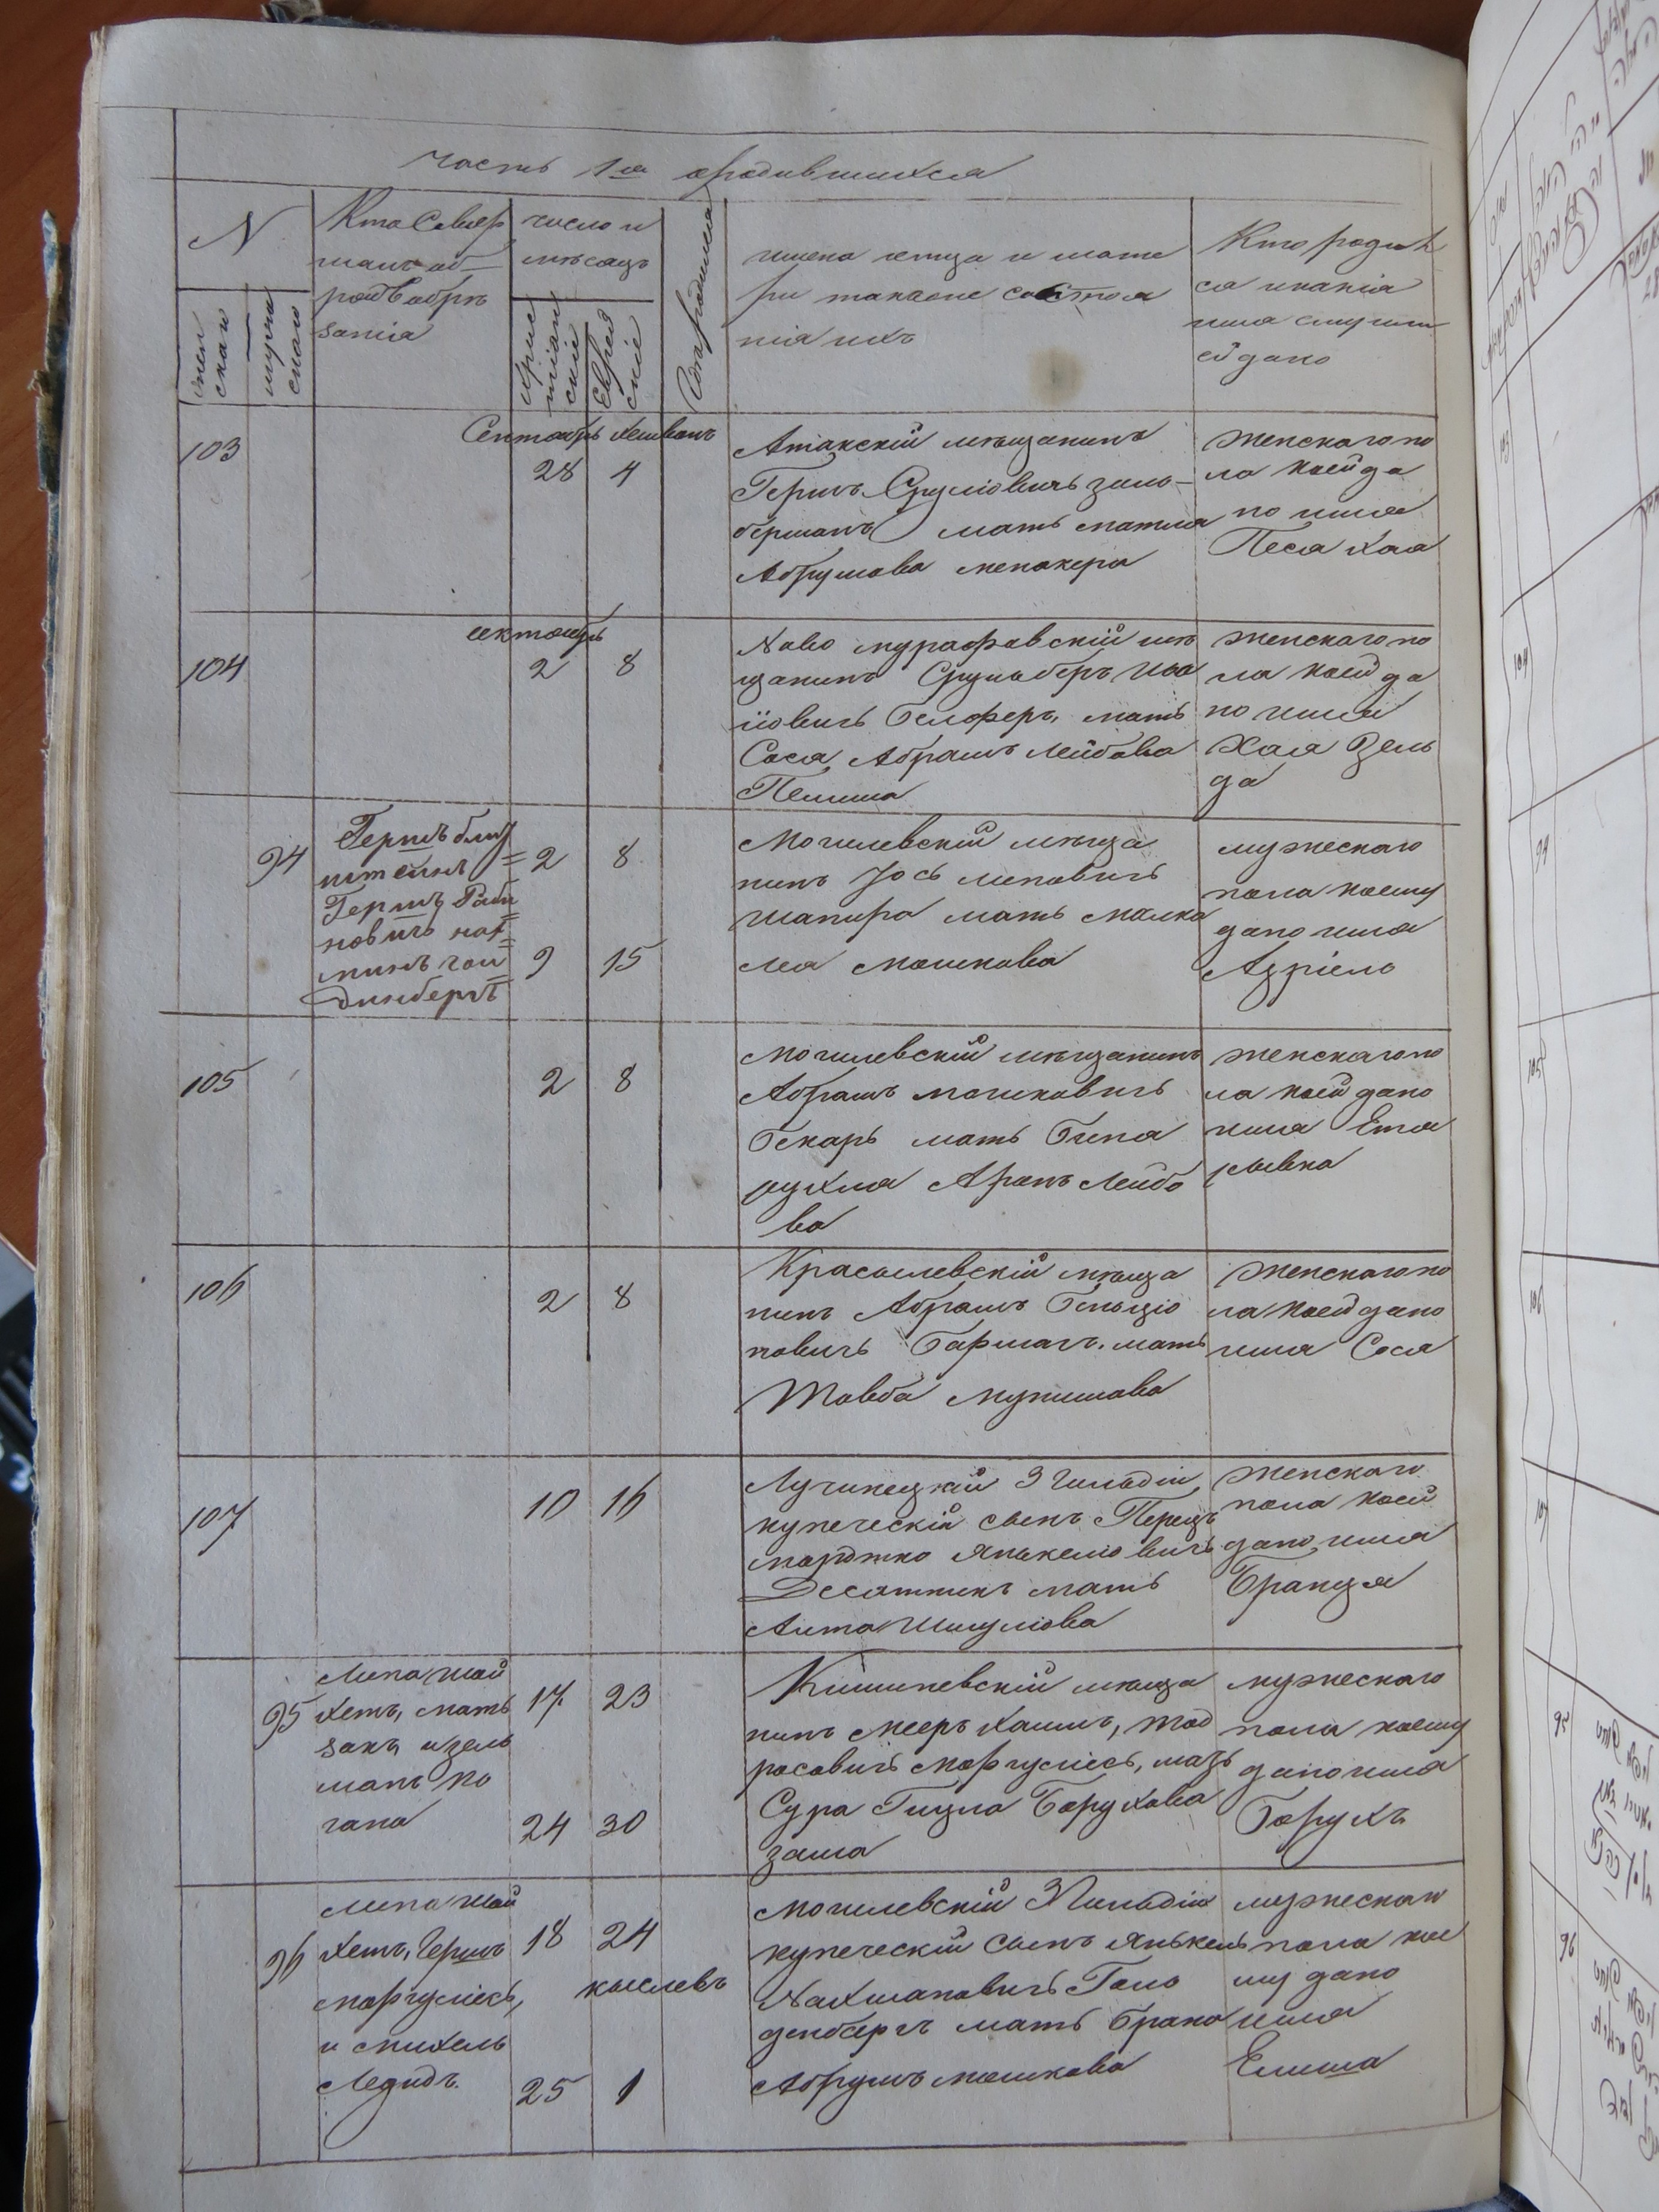 часть 1я о родившихся
N
женскаго
мужескаго
Кто совер
шалъ об-
рядъ обрѣ
занія
число и
мѣсяцъ
Христіанскій
Еврейскій
Гдѣ родился
имена отца и мате
ри такъже состоя
нія ихъ
Кто родил
ся и какія
имя ему или
ей дано
103
Сентябрь Хешванъ
28 4
Атакскій мѣщанинъ
Гершъ Сруліовичъ Зиль-
берманъ мать Матля
Абрумова Менакера
женскаго по
ла коей да
но имя
Песя Хая
104
октябрь
2 8
Ново мурафовскій мѣ
щанинъ Срульберъ
іовичъ Белферъ, мать
Сося Абрамъ Лейбова
женскаго по
ла коей да
но имя
Хая Зель
да
94
Гершъ блу
штейнъ
Гершъ Раби
новичъ
динбергъ
2 8
9 15
Могилевскій мѣща
нинъ Іось Липовичъ
Шапира мать Малка
Леа Мошкова
мужескаго
пола коему
дано имя
Азріель
105
2 8
Могилевскій мѣщанинъ
Абрамъ Мошковичъ
Бекаръ мать Бина
Рухля Аронъ Лейбо
ва
женскаго по
ла коей дано
имя Етя
Рывка
106
2 8
Красилевскій мѣща
нинъ Абрамъ Беньціо
новичъ мать
Товба
женскаго по
ла коей дано
имя Сося
107
10 16
Лучинецкій 3 гильдіи
купеческій сынъ Перецъ
Мордко Янкеліовичъ
Десятникъ мать
Анта Шмуліова
женскаго
пола коей
дано имя
Бранця
95
Липа Шай
хетъ,
занъ Изель
манъ Ко
гана
17 23
24 30
Кишиневскій мѣща
нинъ Мееръ Хаимъ, Тод
росовичъ Моргуліесъ, мать
Сура Гитля Борухова
мужескаго
пола коему
дано имя
Борухъ
96
Липа Шай
хетъ, Гершъ
Моргуліесъ,
и Михель
18 24
кыслевъ
25 1
Могилевскій 3 гильдіи
купеческій сынъ Янькель
Нахмановичъ Голь
денбергъ мать Брана
Абрумъ Мошкова
мужескаго
пола кое
му дано
имя
Елиша